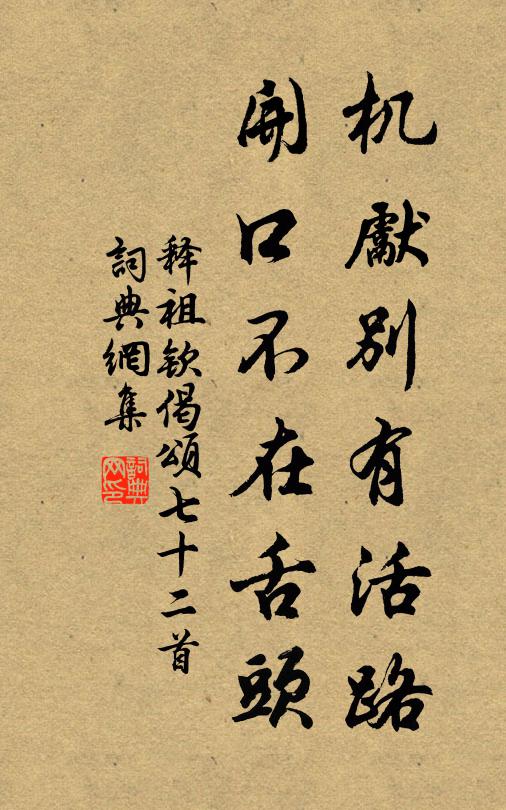 机獻別有活路
開口不在舌頭
释祖钦偈頌七十二首
詞典網集
詞典网印